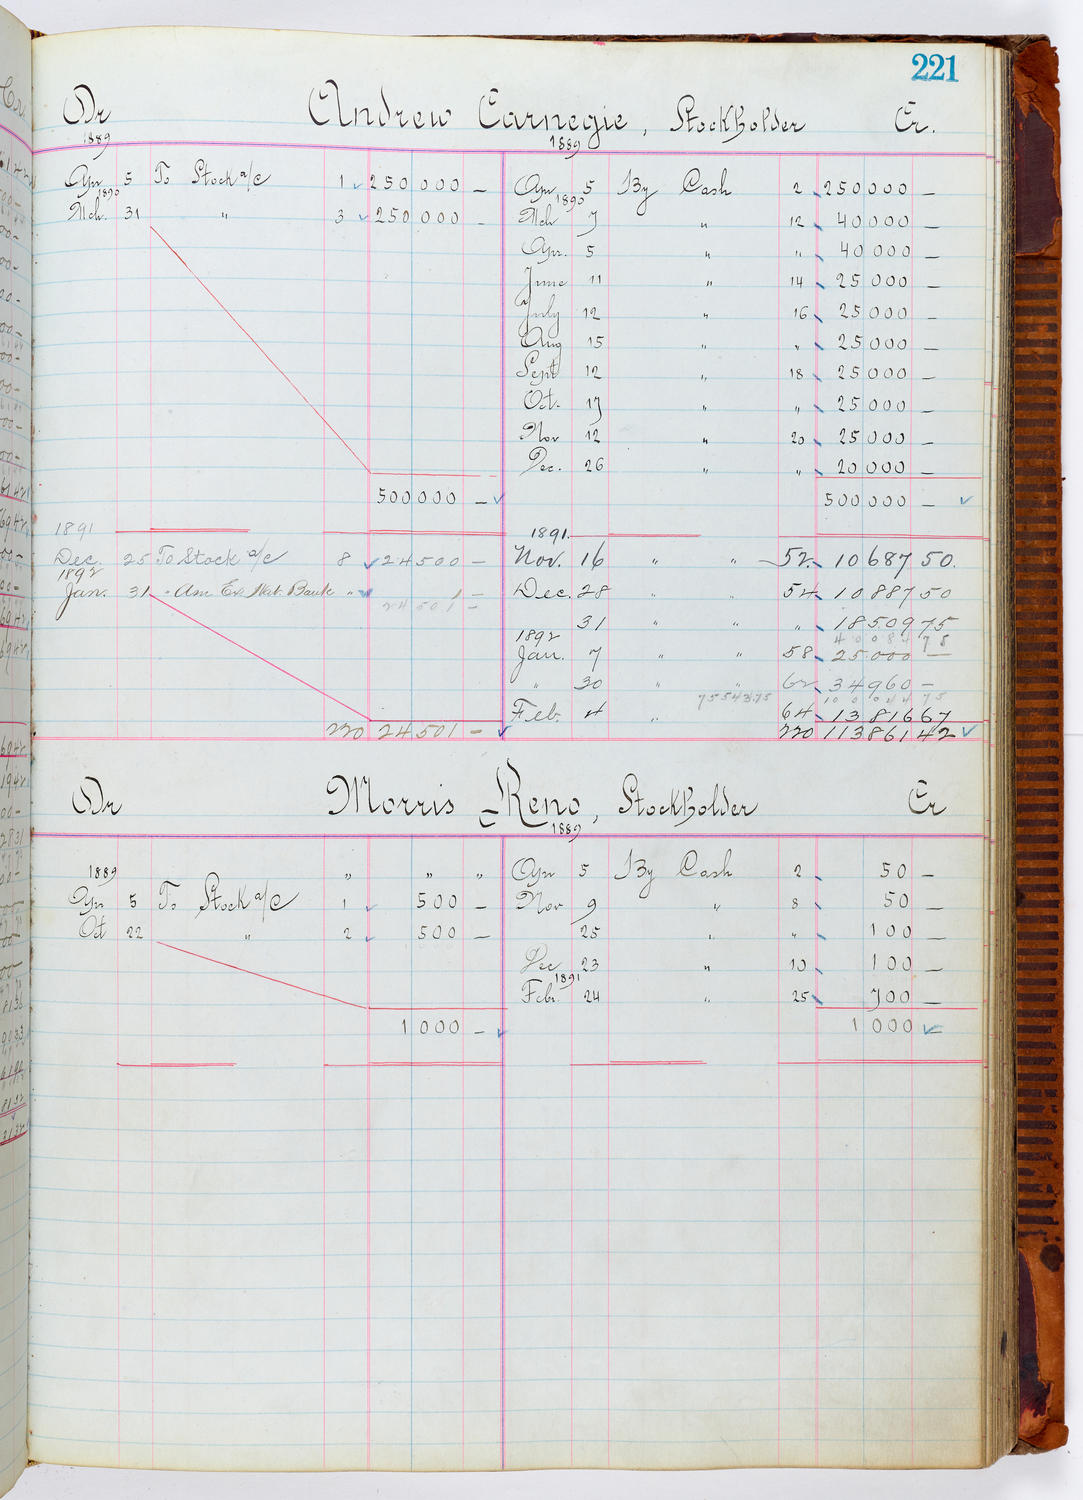 221
Dr Andrew Carnegie, Stockholder Cr.
1889 1889
Apr 5 To Stock a/c 1 250000 — Apr 5 By Cash 2 250000 —
1890 1890
Mch. 31 " 3 250000 — Mch 7 " 12 40000 —
Apr. 5 " " 40000 —
June 11 " 14 25000 —
July 12 " 16 25000 —
Aug 15 " " 25000 —
Sept 12 " 18 25000 —
Oct. 17 " " 25000 —
Nov 12 " 20 25000 —
Dec. 26 " " 20000 —
500000 — 500000 —
1891 1891.
Dec. 25 To Stock a/c 8 24500 — Nov. 16 " " 52 10687 50.
1892
Jan. 31 " Am Ex Nat. Bank " 1 — Dec. 28 54 10887 50
24501 —
31 " " " 18509 75
1892 40084 75
Jan. 7 " " 58 25000 —
" 30 " " 62 34960 —
75543.75 100044 75
Feb. 4 " 64 13816 67
220 24501 — 220 113861 42
Dr Morris Reno, Stockholder Cr
1889
1889 " " " Apr 5 By Cash 2 50 —
Apr 5 To Stock a/c 1 500 — Nov 9 " 8 50 —
Oct 22 " 2 500 — 25 " " 100 —
Dec 23 " 10 100 —
1891
Febr. 24 " 25 700 —
1000 — 1000